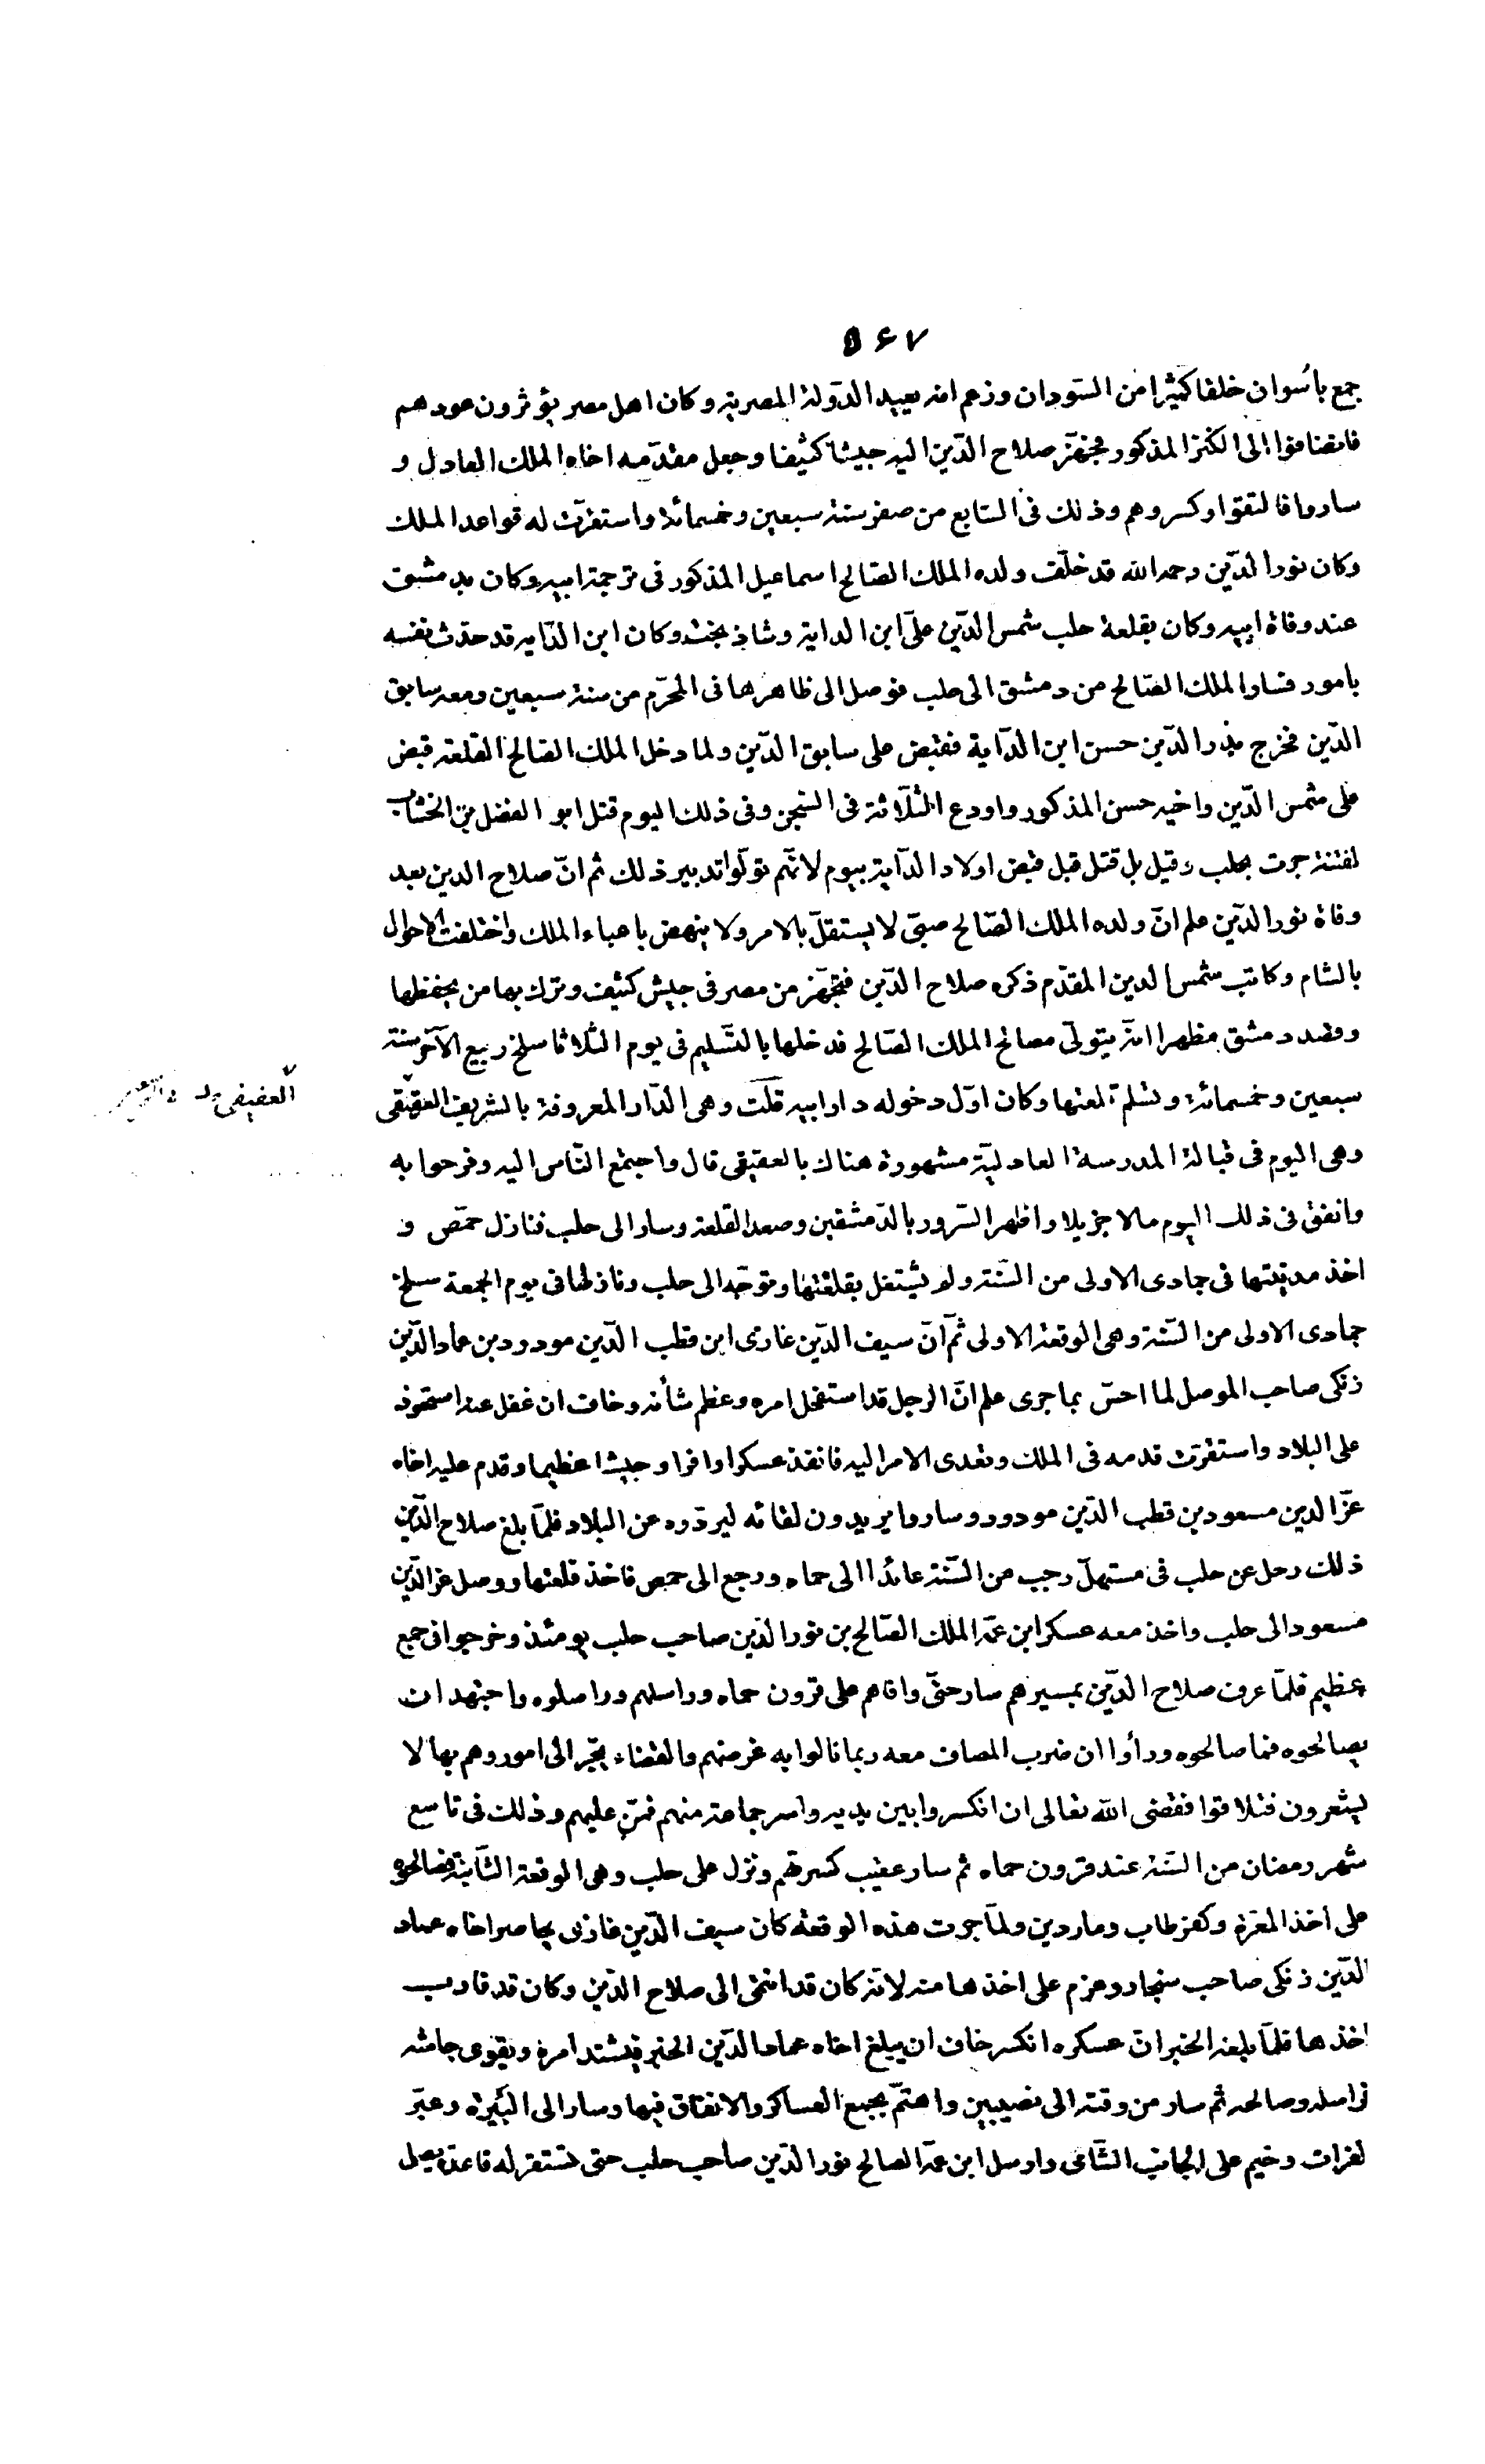 ٥٤٧
جمع باُسوان خلقا كثيرا من السّودان وزعم انه يعيد الدّولة المصرية وكان اهل مصر يؤثرون عودهم
فانضافوا الى الكنز المذكور فجهّز صلاح الدّين اليه جيشا كثيفا وجعل مقدّمه اخاه الملك العادل و
ساروا فالتقوا وكسروهم وذلك فى السّابع من صفر سنة سبعين وخمسمائة واستقرّت له قواعد الملك
وكان نور الدّين رحمه الله قد خلّف ولده الملك الصّالح اسماعيل المذكور فى ترجمة ابيه وكان بدمشق
عند وفاة ابيه وكان بقلعة حلب شمس الدّين علىّ ابن الداية وشاذ بخت وكان ابن الدّايه قد حدّث نفسه
بامور فسار الملك الصّالح من دمشق الى حلب فوصل الى ظاهرها فى المحرّم من سنة سبعين ومعه سابق
الدّين فخرج بدر الدّين حسن ابن الدّاية فقبض على سابق الدّين ولما دخل الملك الصّالح القلعة قبض
على شمس الدّين واخيه حسن المذكور واودع الثّلاثة فى السّجن وفى ذلك اليوم قتل ابو الفضل بن الخشاب
لفتنة جرت بحلب وقيل بل قتل قبل قبض اولاد الدّاية بيوم لانّهم تولّوا تدبير ذلك ثم انّ صلاح الدين بعد
وفاة نور الدّين علم انّ ولده الملك الصّالح صبىّ لا يستقلّ بالامر ولا ينهض باعباء الملك واختلفت الاحوال
بالشام وكاتب شمس الدين المقدّم ذكره صلاح الدّين فتجهّز من مصر فى جيش كثيف وترك بها من يحفظها
وقصد دمشق مظهرا انّه يتولّى مصالح الملك الصّالح فدخلها بالتّسليم فى يوم الثّلاثا سلخ ربيع الآخر سنة
سبعين وخمسمائة وتسلّم قلعتها وكان اوّل دخوله دار ابيه قلت وهى الدّار المعروفة بالشريف العقيقى
العقيقى
وهى اليوم فى قبالة المدرسة العادليّة مشهورة هناك بالعقيقى قال واجتمع النّاس اليه وفرحوا به
وانفق فى ذلك اليوم مالا جزيلا واظهر السّرور بالدّمشقين وصعد القلعة وسار الى حلب فنازل حمّص و
اخذ مدينتها فى جمادى الاولى من السّنة ولم يشتغل بقلعتها وتوجّه الى حلب ونازلها فى يوم الجمعة سلخ
جمادى الاولى من السّنة وهى الوقعة الاولى ثمّ انّ سيف الدّين غازى ابن قطب الدّين مودود بن عماد الدّين
زنكى صاحب الموصل لما احسّ بما جرى علم انّ الرجل قد استفحل امره وعظم شأنه وخاف ان غفل عنه استحوذ
على البلاد واستقرّت قدمه فى الملك وتعدى الامر اليه فانفذ عسكرا وافرا وجيشا عظيما وقدم عليه اخاه
عزّ الدين مسعود بن قطب الدّين مودود وساروا يريدون لقائه ليردّوه عن البلاد فلمّا بلغ صلاح الدّين
ذلك رحل عن حلب فى مستهلّ رجب من السّنة عائدا الى حماه ورجع الى حمص فاخذ قلعتها ووصل عز الدّين
مسعود الى حلب واخذ معه عسكر ابن عمّه الملك الصّالح بن نور الدّين صاحب حلب يومئذ وخرجوا فى جمع
عظيم فلمّا عرف صلاح الدّين بمسيرهم سار حتّى وافاهم على قرون حماه وراسلهم وراسلوه واجتهد ان
يصالحوه فما صالحوه ورأوا ان ضرب المصاف معه ربما نالوا به غرضهم والقضاء يجّر الى امور وهم بها لا
يشعرون فتلاقوا فقضى الله تعالى ان انكسروا بين يديه واسر جماعة منهم فمنّ عليهم وذلك فى تاسع
شهر رمضان من السّنة عند قرون حماه ثم سار عقيب كسرتهم ونزل على حلب وهى الوقعة الثّانية فصالحوه
على اخذ المعرّة وكفر طاب وماردين ولمّا جرت هذه الوقعة كان سيف الدّين غازى يحاصر اخاه عماد
الدّين زنكى صاحب سنجار وعزم على اخذها منه لانّه كان قد انتمى الى صلاح الدّين وكان قد قارب
اخذها فلمّا بلغه الخبر انّ عسكره انكسر خاف ان يبلغ اخاه عماد الدّين الخبر فيشتد امره ويقوى جاشه
فراسله وصالحه ثم سار من وقته الى نصيبين واهتمّ بجمع العساكر والانفاق فيها وسار الى البيرة وعبّر
لفرات وخيم على الجانب الشّامى وارسل ابن عمّه الصالح نور الدّين صاحب حلب حتى تستقر له قاعدة يصل